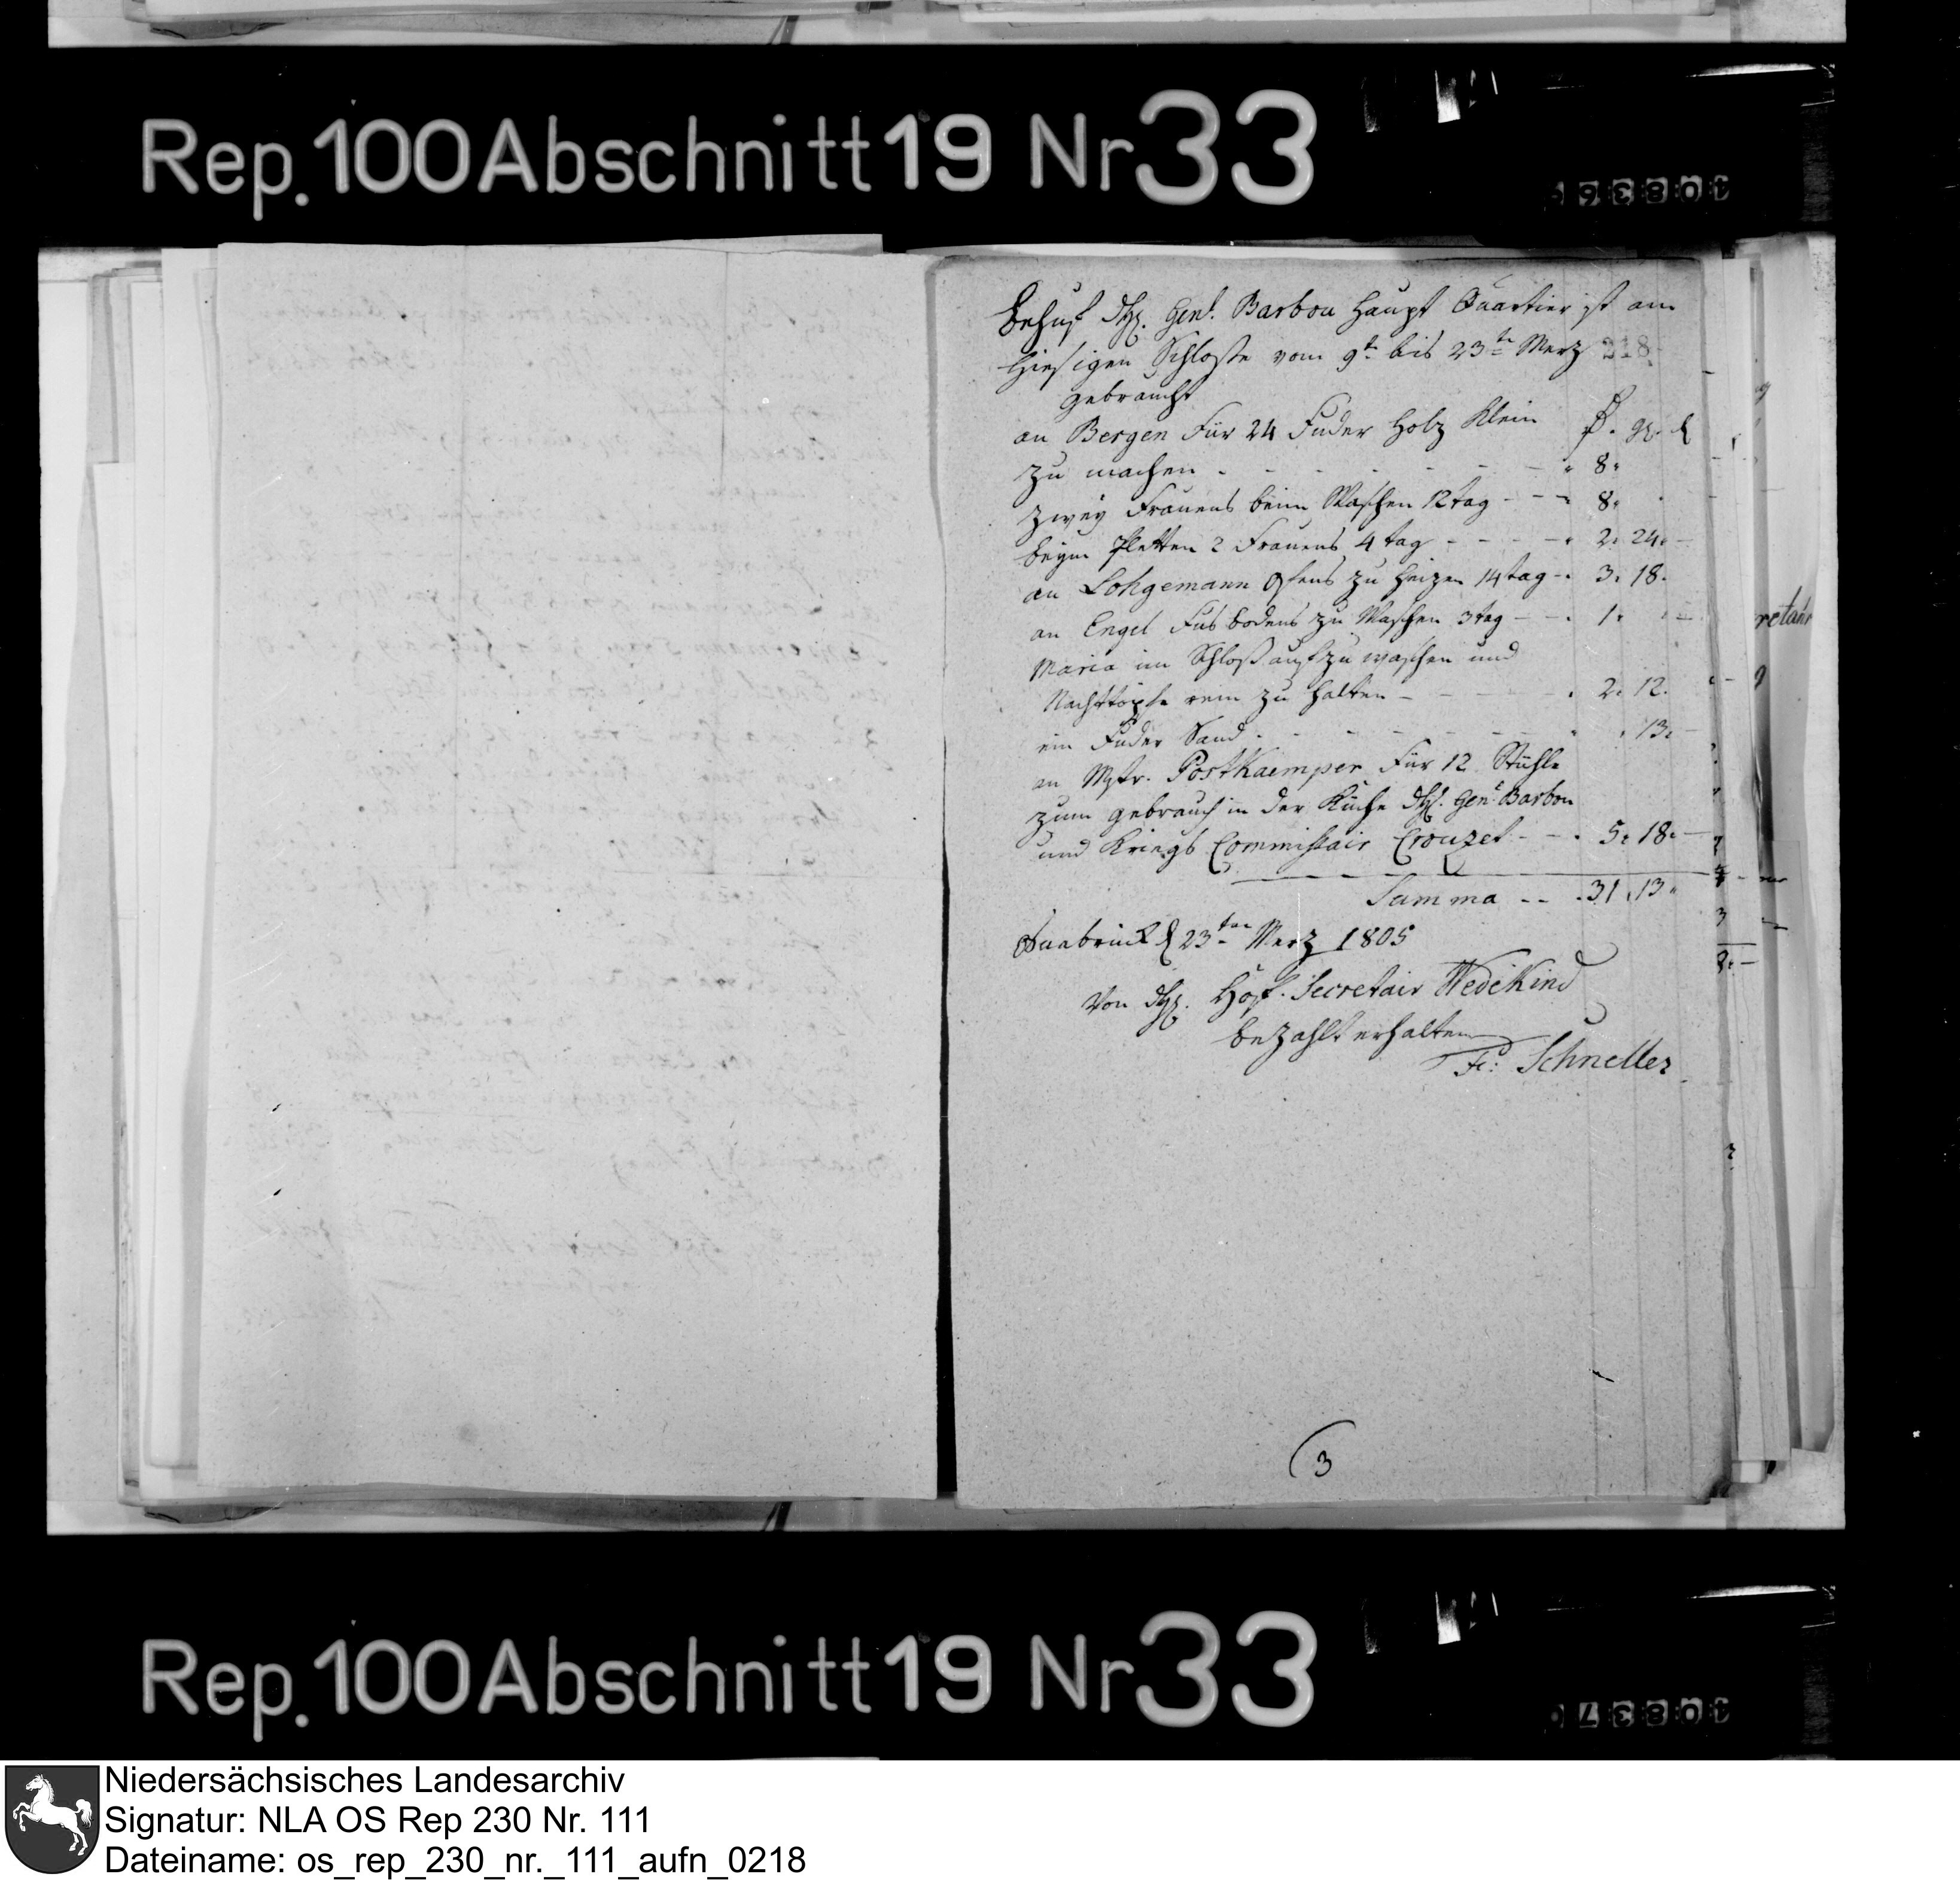 Rep. 100 Abschnitt 19 Nr 33
Behuf Gen!. Barbou Haupt Quartier ist am
hiesigen Schloße vom 9t. bis 23te Merz 218
gebraucht
an Bergen Für 24 Fuder Holz Klein
zu machen - - - - - - 8.
zwey Frauens beim Waschen 12 tag - - - 8.
beym Pletten 2 Frauens 4 tag - - - - 2. 24.
an Lohgemann Ofens zu heizen 14 tag - 3. 18.
an Engel Fusbodens zu Waschen 3 tag - - 1.
Maria im Schloß aufzuwaschen und
Nachttöpfe rein zu halten - - - - 2. 12.
ein Fuder Sand - - - - - - 13.
an Mstr. Postkaemper Für 12 Stühle
zum gebrauch in der Küche Gen!. Barbou
und Kriegs Commissair Crouzet - - 5. 18.
Summa - - 31. 13.
Osnabrück d 23ten Merz 1805
Von Hof. Secretair Wedekind
bezahlt erhalten
Fr: Schneller
(3
Rep. 100 Abschnitt 19 Nr 33
Niedersächsisches Landesarchiv
Signatur: NLA OS Rep 230 Nr. 111
Dateiname: os_rep_230_nr._111_aufn_0218